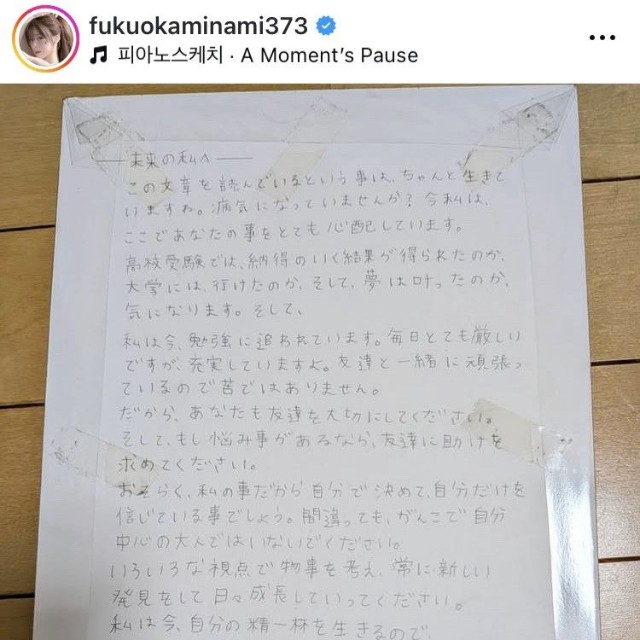 fukuokaminami373
피아노스케치 · A Moment's Pause
未来の私へ
この文章を読んでいるという事は、ちゃんと生きて
いますね。病気になっていませんか？今私は、
ここであなたの事をとても心配しています。
高校受験では、納得のいく結果が得られたのか、
大学には、行けたのか、そして、夢は叶ったのか、
気になります。そして、
私は今、勉強に追われています。毎日とても厳しい
ですが、充実していますよ。友達と一緒に頑張っ
ているので苦ではありません。
だから、あなたも友達を大切にしてください。
そして、もし悩み事があるなら、友達に助けを
求めてください。
おそらく、私の事だから自分で決めて、自分だけを
信じている事でしょう。間違っても、がんこで自分
中心の大人ではいないでください。
いろいろな視点で物事を考え、常に新しい
発見をして日々成長していってください。
私は今、自分の精一杯を生きるので